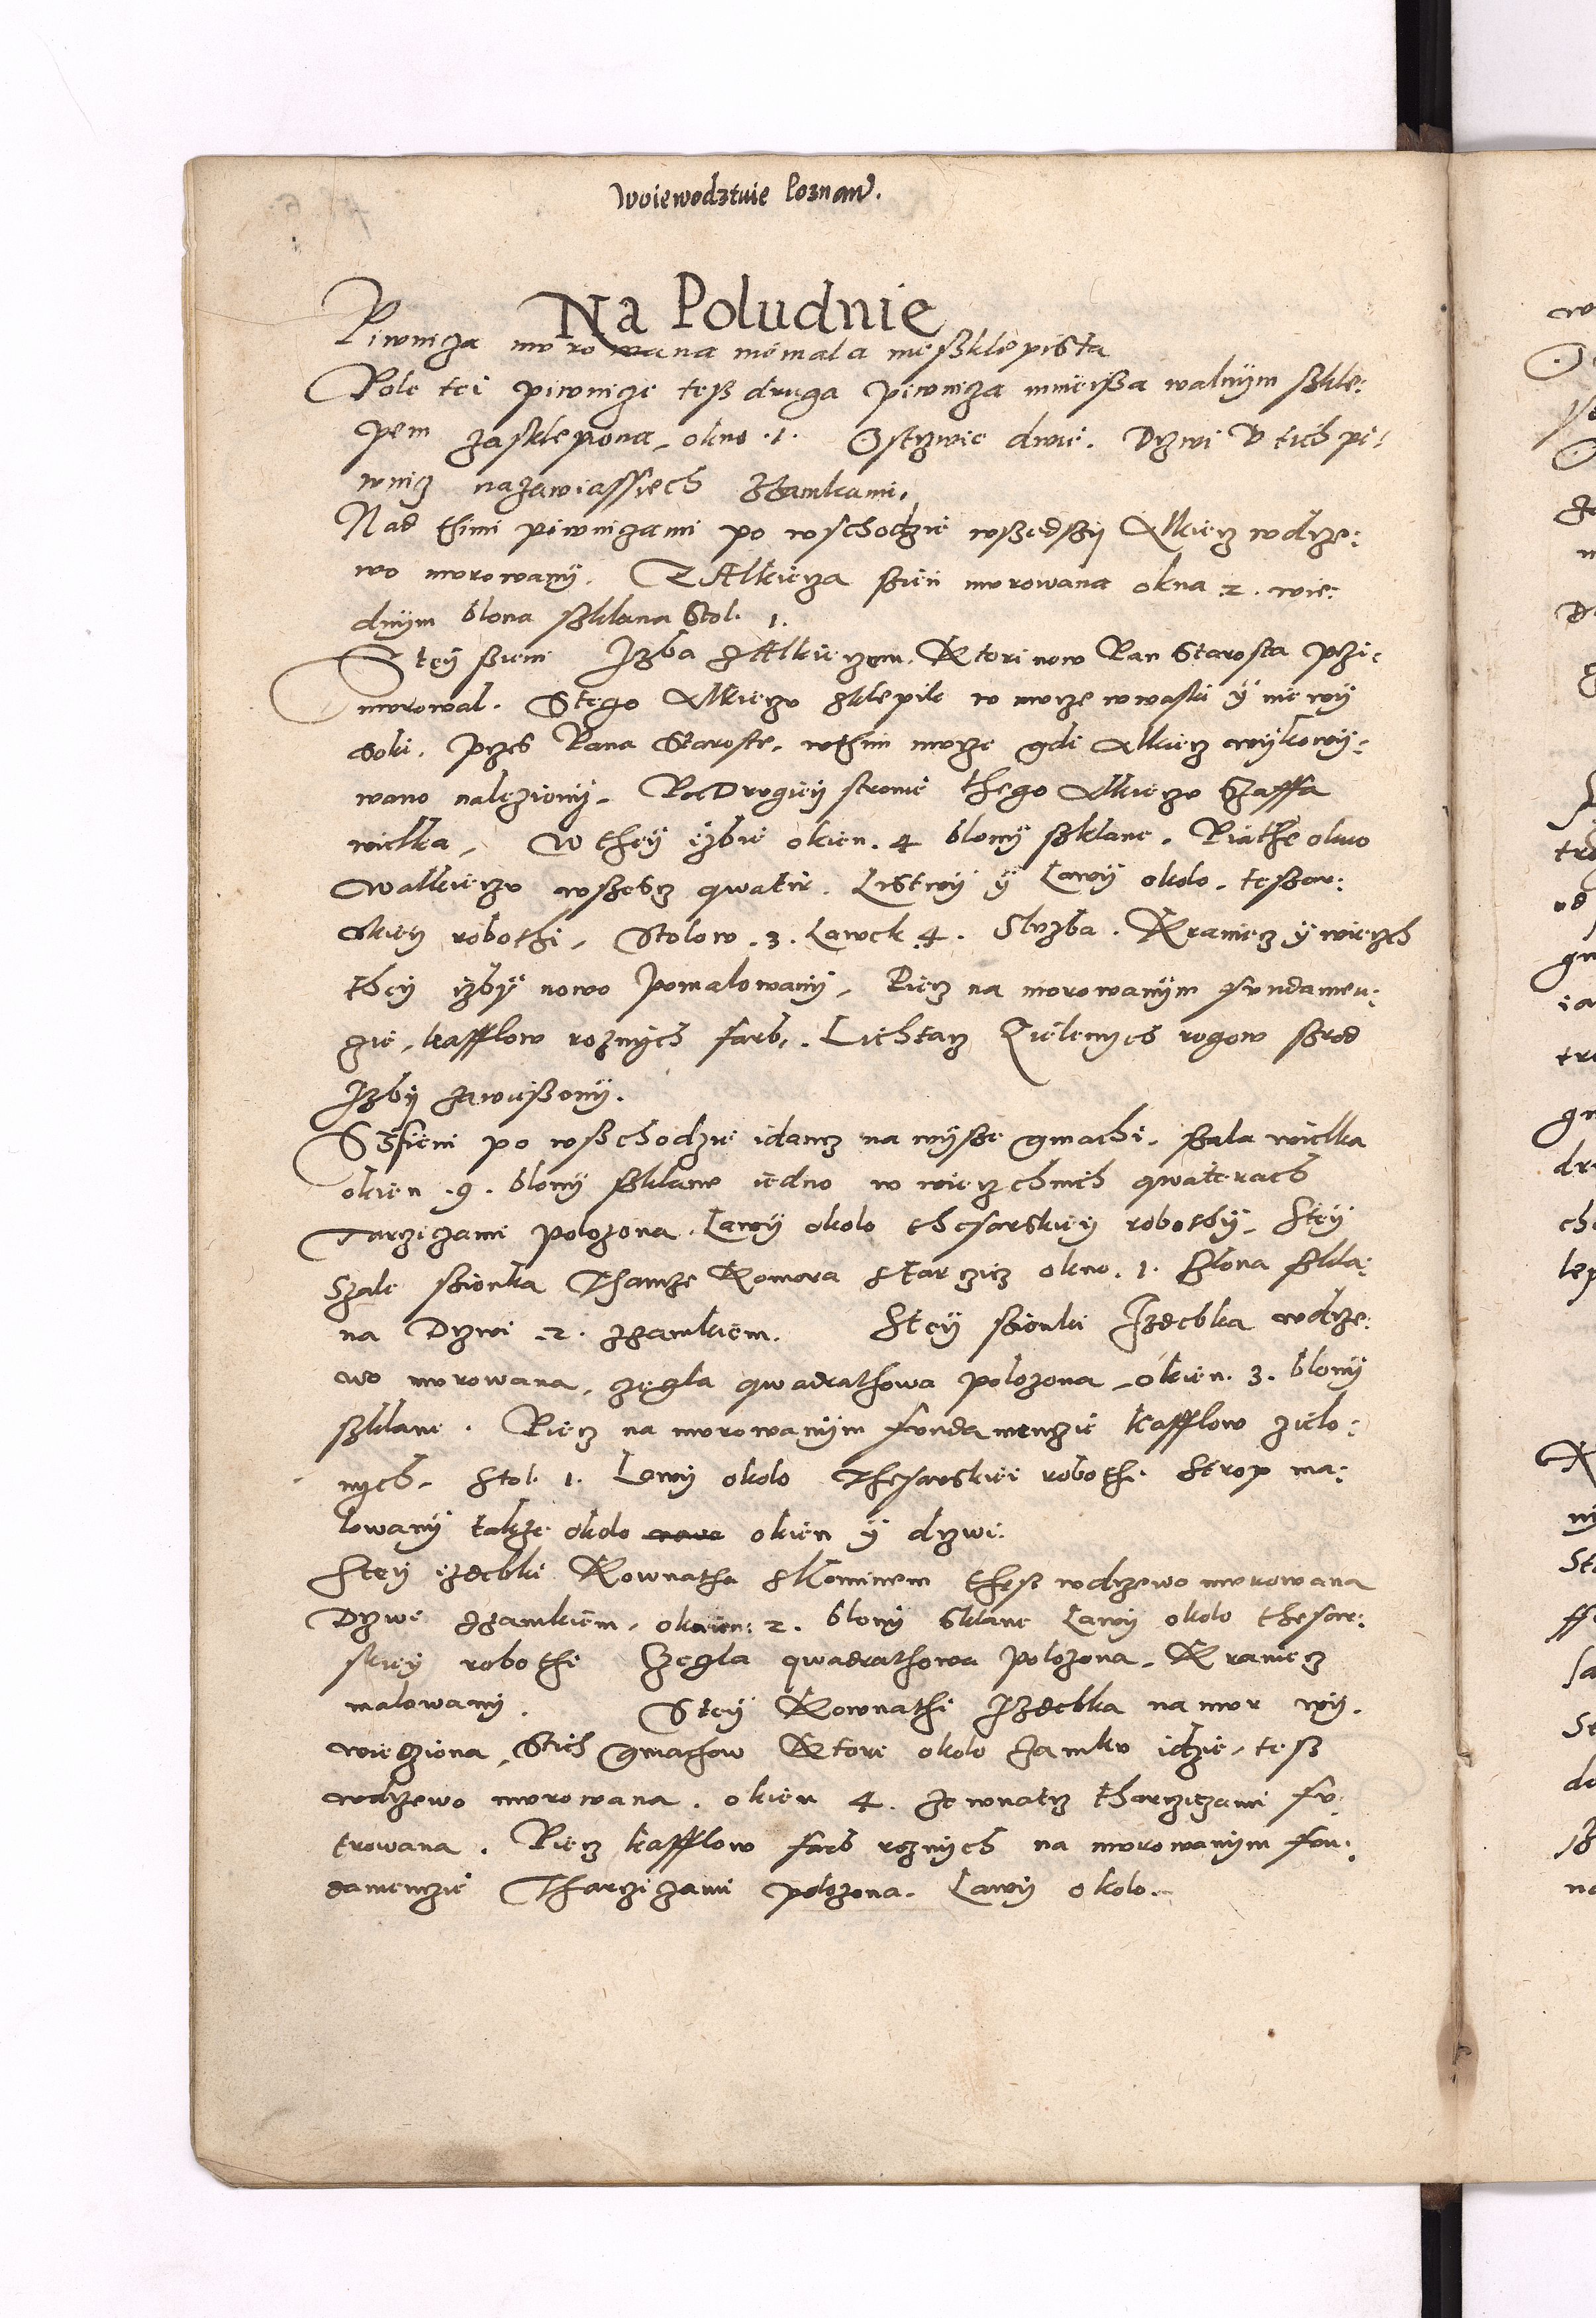 Woiewodztwie Poznan.
Na Poludnie
Piwnicza morowana niemala niesklepista
Pole tei piwnicze tesz druga piwnicza mnieisza walnym skle:
pem zasklepiona, okno .1. Ostrzwie dwie. Drzwi v tich pi:
wnicz nazawiassiech zzamkami.
Nad thimi piwniczami po wschodzie wszedszy Alkierz wdrze:
wo morowany. Z Alkierza szien morowana okna .2. wie:
dnym blona szklana Stol. 1.
Stey szieni Izba z Alkierzem. Ktori now Pan Starosta przi:
morowal. Stego Alkierzv zklepik w morze nowaski y niewy
soki. przes Pana Staroste, wthim morze gdi Alkierz wykowy:
wano nalezieny. Po Drvgiey stronie thego Alkierzv Szaffa
wielka, W they izbie okien. 4 blony szklane. Piathe okno
Walkierzv wszescz qwatir. Listwy y Lawy okolo, teszar:
skiey robothi, Stolow .3. Lawek .4. Slvzba. Kranicz y wierzch
they izby nowo pomalowany, Piecz na morowanym fvndamen:
cie, kafflow roznych farb,. Lichtarz Zielenych rogow szrod
Izby zawieszony.
Szsieni po wschodzie idancz na wysze gmachi, szala wielka
okien .9. blony szklane iedno w wierzchnich qwaterach
Tarczicami polozona. Lawy okolo thesarskiey robothy. Stey
Szale szionka Thamze Komora Starczicz okno .1. blona szkla:
na Drzwi .2. zzamkiem. Stey szionki Izdebka wdrze:
wo morowana, czegla qwadrathowa polozona, okien. 3. blony
szklane. Piecz na morowanym fvndamenczie kafflow zielo:
nych. Stol. 1. Lawy okolo Thesarskiei robothi Strop ma:
lowany takze okolo okien y drzwi.
Stey izdebki Kownatha zKominem thesz wdrzewo morowana
Drzwi zzamkiem, okien: 2. blony sklane Lawy okolo thesar:
skiey robothi Czegla qwadrathowa polozona. Kranicz
malowany. Stey Kownathi Izdebka na mor wy.
wiedziona, Stich gmachow Ktore okolo zamkv idzie, tesz
wdrzewo morowana. okien 4. zewnatrz tharczicami fv:
trowana. Piecz kafflow farb roznych na morowanym fvn:
damenczie Tharczicami polozona. Lawy okolo.